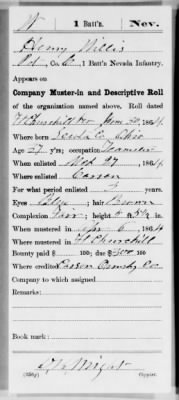 W 1 Batt'n. Nev.
Henry Willis
Co. C, 1 Batt'n Nevada Infantry.
Appears on
Company Muster-in and Descriptive Roll
of the organization named above. Roll dated
Ft Churchill Nev June 30, 1864
Where born Co, Ohio
Age 27 y'rs; occupation Teamster
When enlisted Mch 27, 1864
Where enlisted Carson
For what period enlisted 3 years.
Eyes Blue; hair Brown
Complexion Fair; height 5 ft. in.
When mustered in Apr 6, 1864
Where mustered in Ft Churchill
Bounty paid $ 100; due $ 300 100
Where credited Carson Ormsby Co
Company to which assigned
Remarks:
Book mark:
Wright
Copyist.